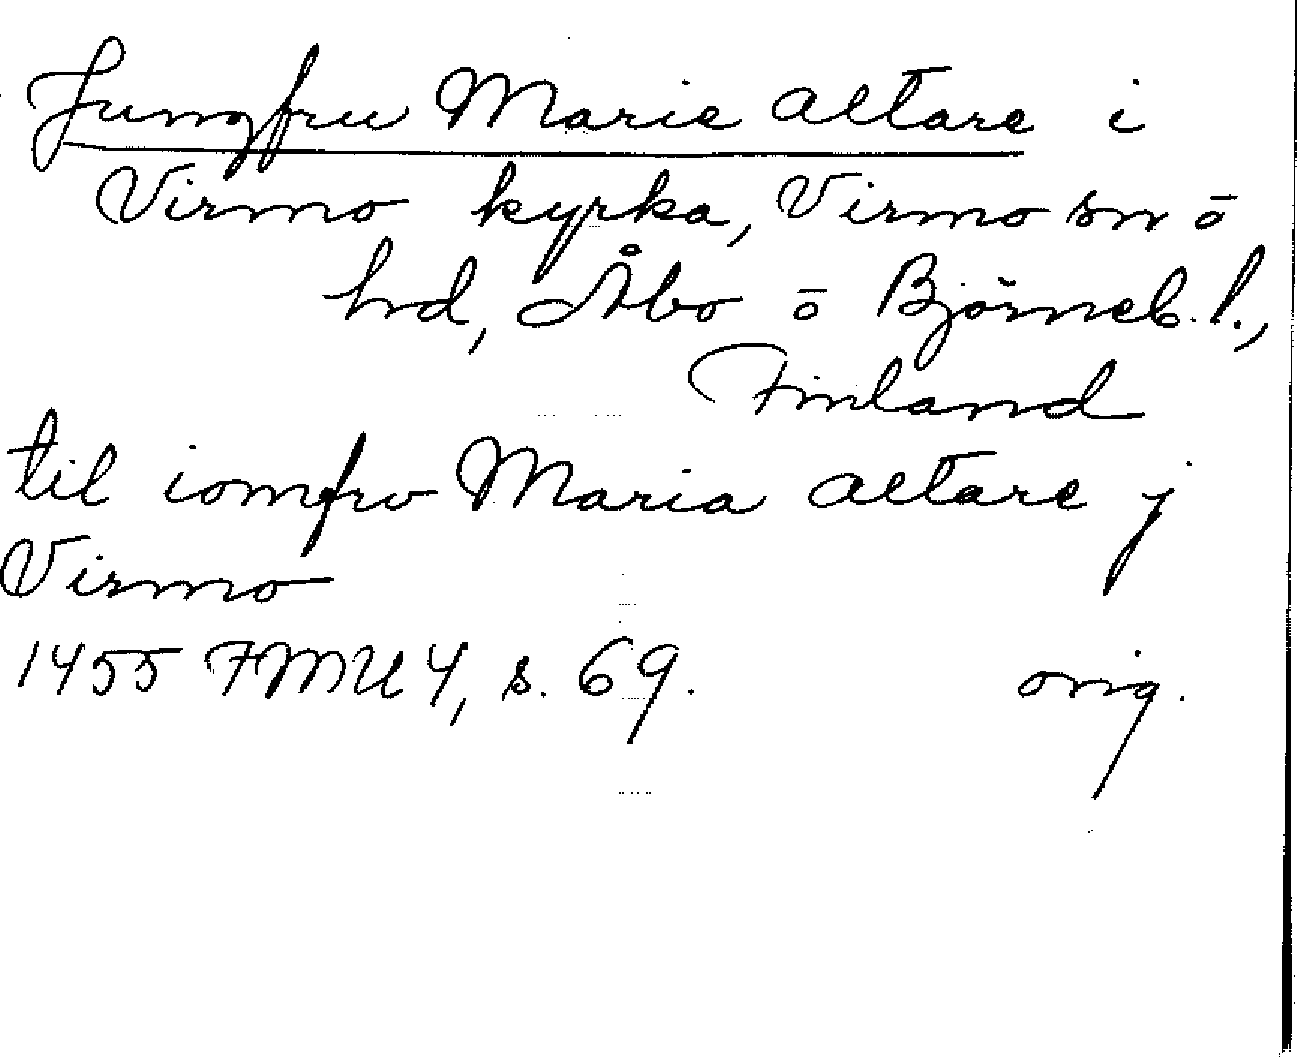 Jungfru Marie altare i
Virmo kyrka, Virmo sn o
hd, Åbo o Björneb. l.,
Finland
til iomfrv Maria altare j
Virmo
1455 FMU 4, s. 69. orig.